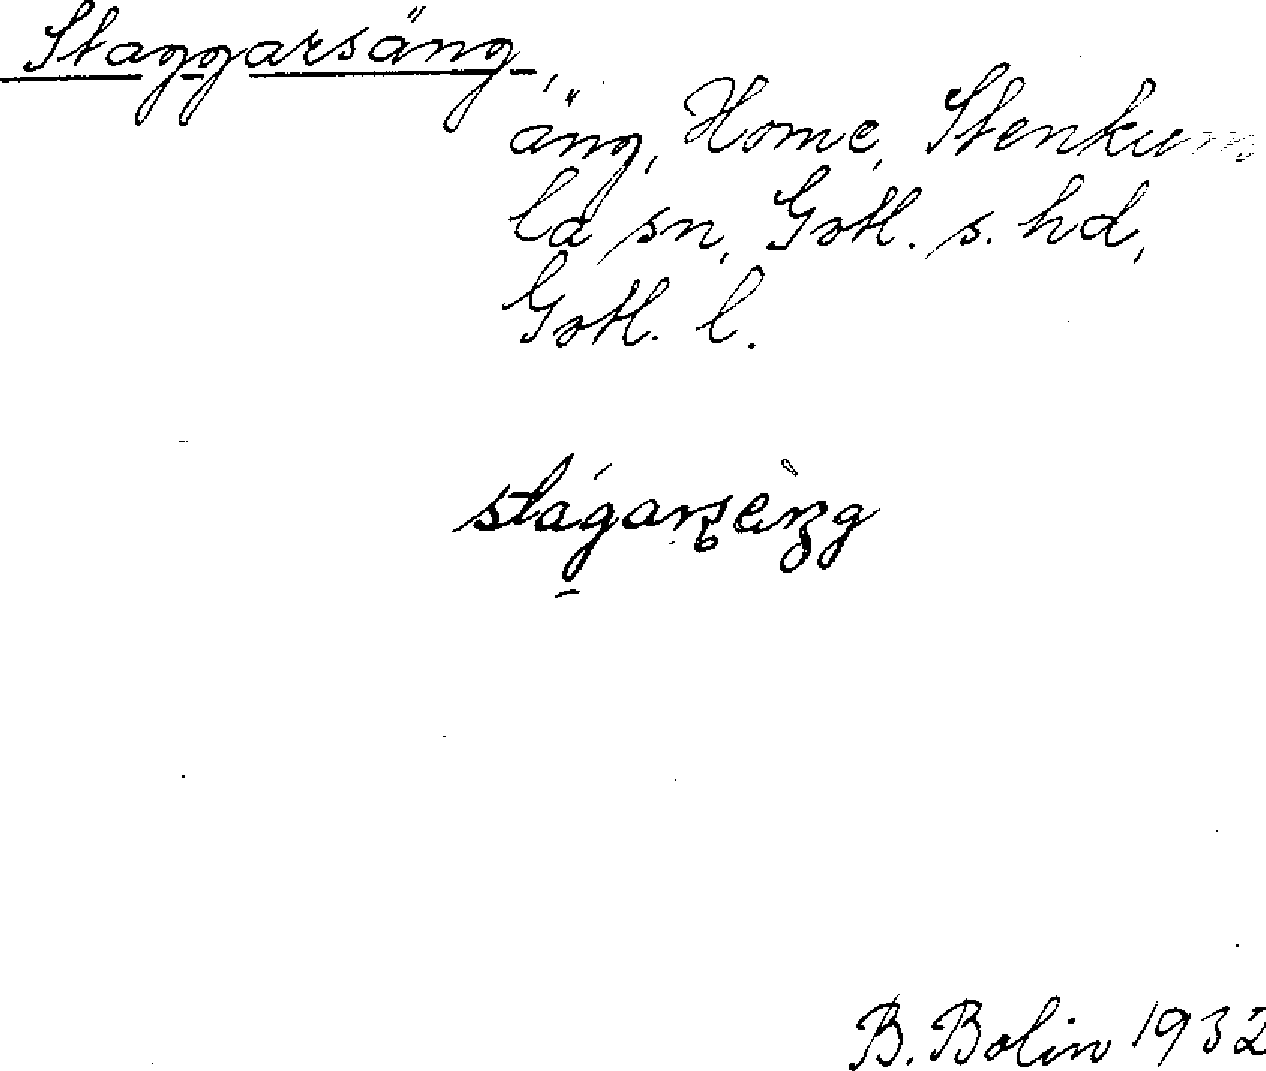 Staggarsäng,
äng, Home, Stenkum
la sn, Gotl. s. hd,
Gotl. l.
B. Bolin 1932